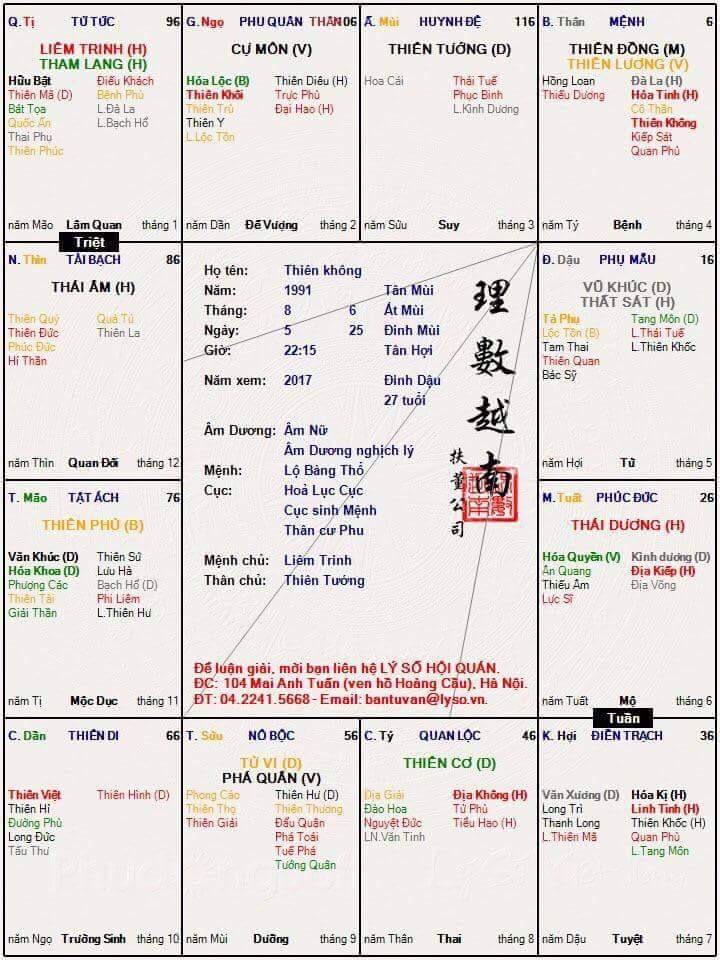 Q. Tị TỬ TỨC 96
LIÊM TRINH (H)
THAM LANG (H)
Hữu Bật
Thiên Mã (D)
Bát Tọa
Quốc Ấn
Thai Phụ
Thiên Phúc
Điếu Khách
Bệnh Phù
L.Đà La
L.Bạch Hổ
năm Mão Lâm Quan tháng 1
G. Ngọ PHU QUÂN THÂN 106
CỰ MÔN (V)
Hóa Lộc (B)
Thiên Khôi
Thiên Trù
Thiên Y
L.Lộc Tồn
Thiên Diêu (H)
Trực Phù
Đại Hao (H)
năm Dần Đế Vượng tháng 2
Ấ. Mùi HUYNH ĐỆ 116
THIÊN TƯỚNG (D)
Hoa Cái
Thái Tuế
Phục Binh
L.Kình Dương
năm Sửu Suy tháng 3
B. Thân MỆNH 6
THIÊN ĐỒNG (M)
THIÊN LƯƠNG (V)
Hồng Loan
Thiếu Dương
Đà La (H)
Hỏa Tinh (H)
Cô Thần
Thiên Không
Kiếp Sát
Quan Phủ
năm Tý Bệnh tháng 4
Triệt
N. Thìn TÀI BẠCH 86
THÁI ÂM (H)
Thiên Quý
Thiên Đức
Phúc Đức
Hỉ Thần
Quả Tú
Thiên La
năm Thìn Quan Đới tháng 12
Họ tên: Thiên không
Năm: 1991 Tân Mùi
Tháng: 8 6 Ất Mùi
Ngày: 5 25 Đinh Mùi
Giờ: 22:15 Tân Hợi
Năm xem: 2017 Đinh Dậu
27 tuổi
Âm Dương: Âm Nữ
Âm Dương nghịch lý
Mệnh: Lộ Bàng Thổ
Cục: Hoả Lục Cục
Cục sinh Mệnh
Thân cư Phu
Mệnh chủ: Liêm Trinh
Thân chủ: Thiên Tướng
理數越南
扶董公司
Để luận giải, mời bạn liên hệ LÝ SỐ HỘI QUÁN.
ĐC: 104 Mai Anh Tuấn (ven hồ Hoàng Cầu), Hà Nội.
ĐT: 04.2241.5668 - Email: bantuvan@lyso.vn.
Đ. Dậu PHỤ MẪU 16
VŨ KHÚC (D)
THẤT SÁT (H)
Tả Phụ
Lộc Tồn (B)
Tam Thai
Thiên Quan
Bác Sỹ
Tang Môn (D)
L.Thái Tuế
L.Thiên Khốc
năm Hợi Tử tháng 5
T. Mão TẬT ÁCH 76
THIÊN PHỦ (B)
Văn Khúc (D)
Hóa Khoa (D)
Phượng Các
Thiên Tài
Giải Thần
Thiên Sứ
Lưu Hà
Bạch Hổ (D)
Phi Liêm
L.Thiên Hư
năm Tị Mộc Dục tháng 11
M. Tuất PHÚC ĐỨC 26
THÁI DƯƠNG (H)
Hóa Quyền (V)
Ân Quang
Thiếu Âm
Lực Sĩ
Kình dương (D)
Địa Kiếp (H)
Địa Võng
năm Tuất Mộ tháng 6
Tuần
C. Dần THIÊN DI 66
Thiên Việt
Thiên Hỉ
Đường Phù
Long Đức
Tấu Thư
Thiên Hình (D)
năm Ngọ Trường Sinh tháng 10
T. Sửu NÔ BỘC 56
TỬ VI (D)
PHÁ QUÂN (V)
Phong Cáo
Thiên Thọ
Thiên Giải
Thiên Hư (D)
Thiên Thương
Đẩu Quân
Phá Toái
Tuế Phá
Tướng Quân
năm Mùi Dưỡng tháng 9
C. Tý QUAN LỘC 46
THIÊN CƠ (D)
Địa Giải
Đào Hoa
Nguyệt Đức
LN.Văn Tinh
Địa Không (H)
Tử Phù
Tiểu Hao (H)
năm Thân Thai tháng 8
K. Hợi ĐIỀN TRẠCH 36
Văn Xương (D)
Long Trì
Thanh Long
L.Thiên Mã
Hóa Kị (H)
Linh Tinh (H)
Thiên Khốc (H)
Quan Phù
L.Tang Môn
năm Dậu Tuyệt tháng 7